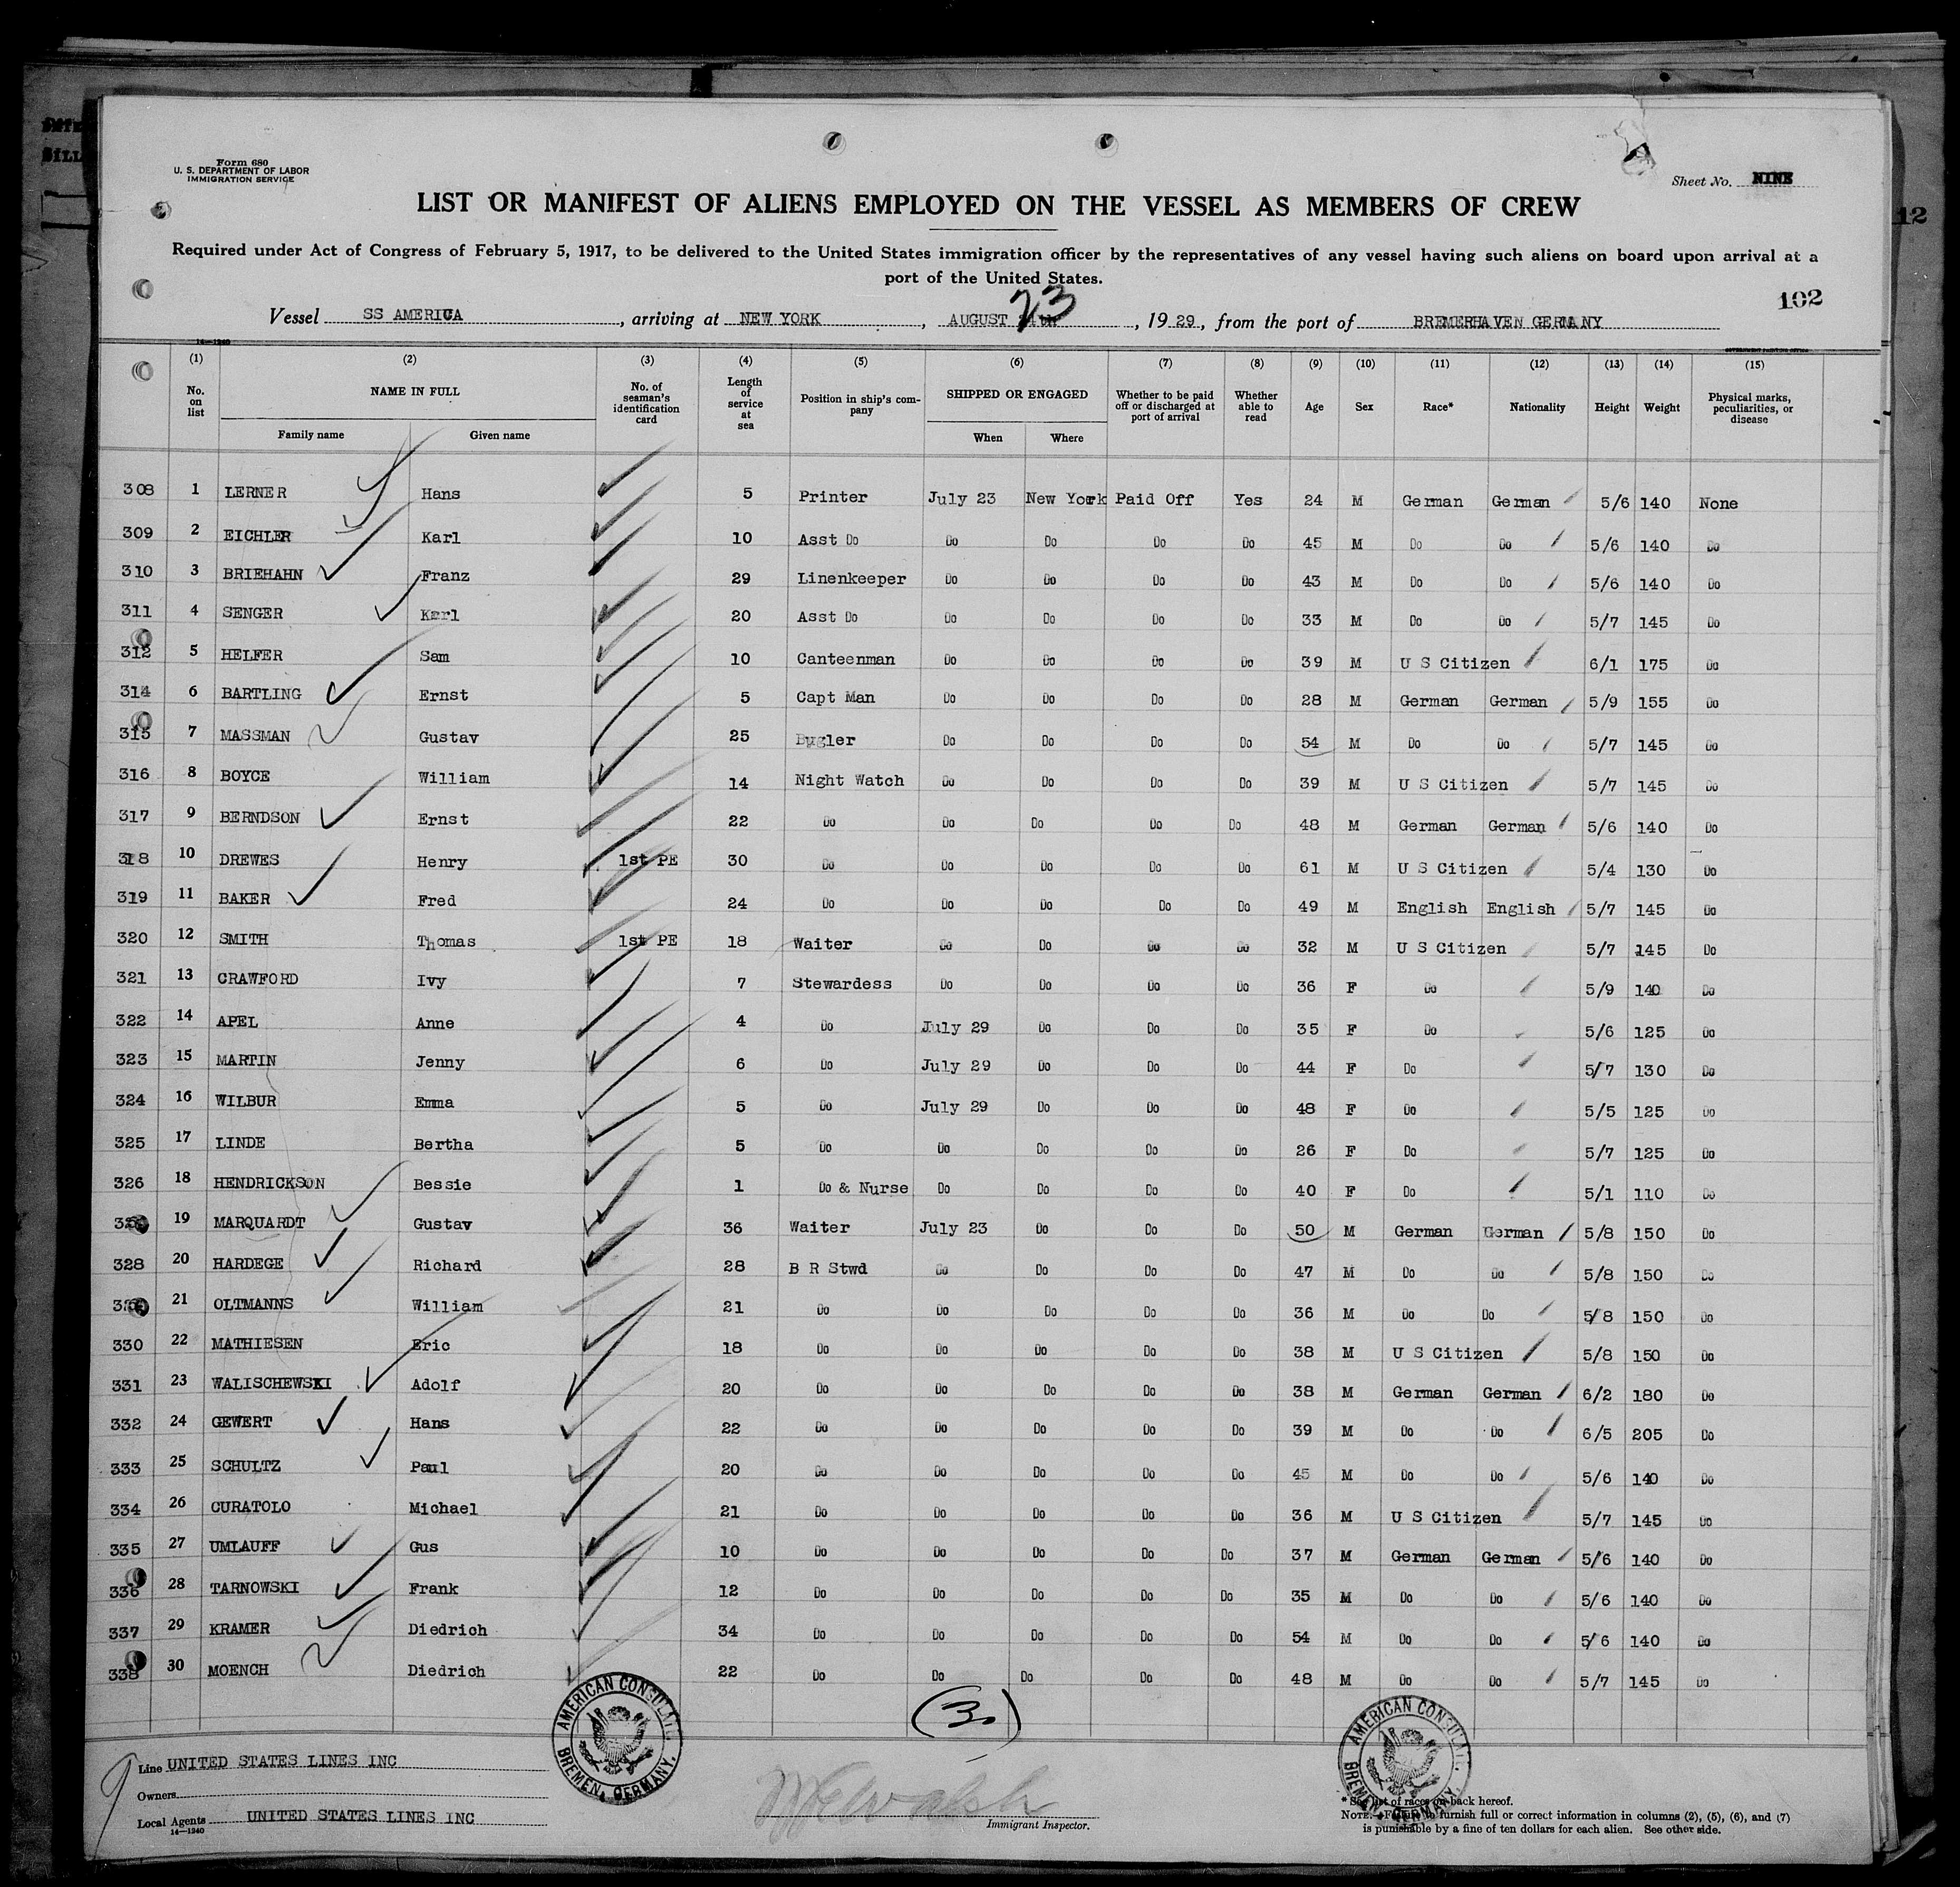 Form 680
U. S. DEPARTMENT OF LABOR
IMMIGRATION SERVICE
Sheet No. NINE
LIST OR MANIFEST OF ALIENS EMPLOYED ON THE VESSEL AS MEMBERS OF CREW
12
Required under Act of Congress of February 5, 1917, to be delivered to the United States immigration officer by the representatives of any vessel having such aliens on board upon arrival at a
port of the United States.
102
Vessel SS AMERICA, arriving at NEW YORK, AUGUST 23, 1929, from the port of BREMERHAVEN GERMANY
14—1240 GOVERNMENT PRINTING OFFICE
(1) (2) (3) (4) (5) (6) (7) (8) (9) (10) (11) (12) (13) (14) (15)
No. on list NAME IN FULL Family name Given name No. of seaman's identification card Length of service at sea Position in ship's company SHIPPED OR ENGAGED When Where Whether to be paid off or discharged at port of arrival Whether able to read Age Sex Race* Nationality Height Weight Physical marks, peculiarities, or disease
308 1 LERNER Hans 5 Printer July 23 New York Paid Off Yes 24 M German German 5/6 140 None
309 2 EICHLER Karl 10 Asst Do Do Do Do Do 45 M Do Do 5/6 140 Do
310 3 BRIEHAHN Franz 29 Linenkeeper Do Do Do Do 43 M Do Do 5/6 140 Do
311 4 SENGER Karl 20 Asst Do Do Do Do Do 33 M Do Do 5/7 145 Do
312 5 HELFER Sam 10 Canteenman Do Do Do Do 39 M U S Citizen 6/1 175 Do
314 6 BARTLING Ernst 5 Capt Man Do Do Do Do 28 M German German 5/9 155 Do
315 7 MASSMAN Gustav 25 Bugler Do Do Do Do 54 M Do Do 5/7 145 Do
316 8 BOYCE William 14 Night Watch Do Do Do Do 39 M U S Citizen 5/7 145 Do
317 9 BERNDSON Ernst 22 Do Do Do Do Do 48 M German German 5/6 140 Do
318 10 DREWES Henry 1st PE 30 Do Do Do Do Do 61 M U S Citizen 5/4 130 Do
319 11 BAKER Fred 24 Do Do Do Do Do 49 M English English 5/7 145 Do
320 12 SMITH Thomas 1st PE 18 Waiter Do Do Do Do 32 M U S Citizen 5/7 145 Do
321 13 CRAWFORD Ivy 7 Stewardess Do Do Do Do 36 F Do 5/9 140 Do
322 14 APEL Anne 4 Do July 29 Do Do Do 35 F Do 5/6 125 Do
323 15 MARTIN Jenny 6 Do July 29 Do Do Do 44 F Do 5/7 130 Do
324 16 WILBUR Emma 5 Do July 29 Do Do Do 48 F Do 5/5 125 Do
325 17 LINDE Bertha 5 Do Do Do Do Do 26 F Do 5/7 125 Do
326 18 HENDRICKSON Bessie 1 Do & Nurse Do Do Do Do 40 F Do 5/1 110 Do
19 MARQUARDT Gustav 36 Waiter July 23 Do Do Do 50 M German German 5/8 150 Do
328 20 HARDEGE Richard 28 B R Stwd Do Do Do Do 47 M Do Do 5/8 150 Do
21 OLTMANNS William 21 Do Do Do Do Do 36 M Do Do 5/8 150 Do
330 22 MATHIESEN Eric 18 Do Do Do Do Do 38 M U S Citizen 5/8 150 Do
331 23 WALISCHEWSKI Adolf 20 Do Do Do Do Do 38 M German German 6/2 180 Do
332 24 GEWERT Hans 22 Do Do Do Do Do 39 M Do Do 6/5 205 Do
333 25 SCHULTZ Paul 20 Do Do Do Do Do 45 M Do Do 5/6 140 Do
334 26 CURATOLO Michael 21 Do Do Do Do Do 36 M U S Citizen 5/7 145 Do
335 27 UMLAUFF Gus 10 Do Do Do Do Do 37 M German German 5/6 140 Do
336 28 TARNOWSKI Frank 12 Do Do Do Do Do 35 M Do Do 5/6 140 Do
337 29 KRAMER Diedrich 34 Do Do Do Do Do 54 M Do Do 5/6 140 Do
338 30 MOENCH Diedrich 22 Do Do Do Do Do 48 M Do Do 5/7 145 Do
(30)
AMERICAN CONSULATE, BREMEN, GERMANY.
AMERICAN CONSULATE, BREMEN, GERMANY.
9
Line UNITED STATES LINES INC
Owners
Local Agents UNITED STATES LINES INC
14—1240
Walsh
Immigrant Inspector.
* See list of races on back hereof.
NOTE.—Failure to furnish full or correct information in columns (2), (5), (6), and (7)
is punishable by a fine of ten dollars for each alien. See other side.